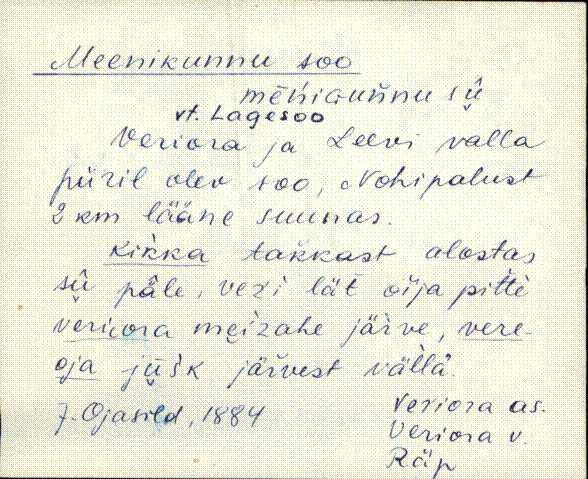 Meenikunnu soo
mēńiɢuňnu sū̬
vt. Lagesoo
Veriora ja Leevi valla
piiril olev soo, Nohipalust
2 km lääne suunas.
kikka takkast alostas
sū̬ päle, vezi lät oija pitte
vericora meizahe järve, vere-
oja jūśk järvest vällä.
J. Ojasild, 1884
Veriora as.
Veriora v.
Räp